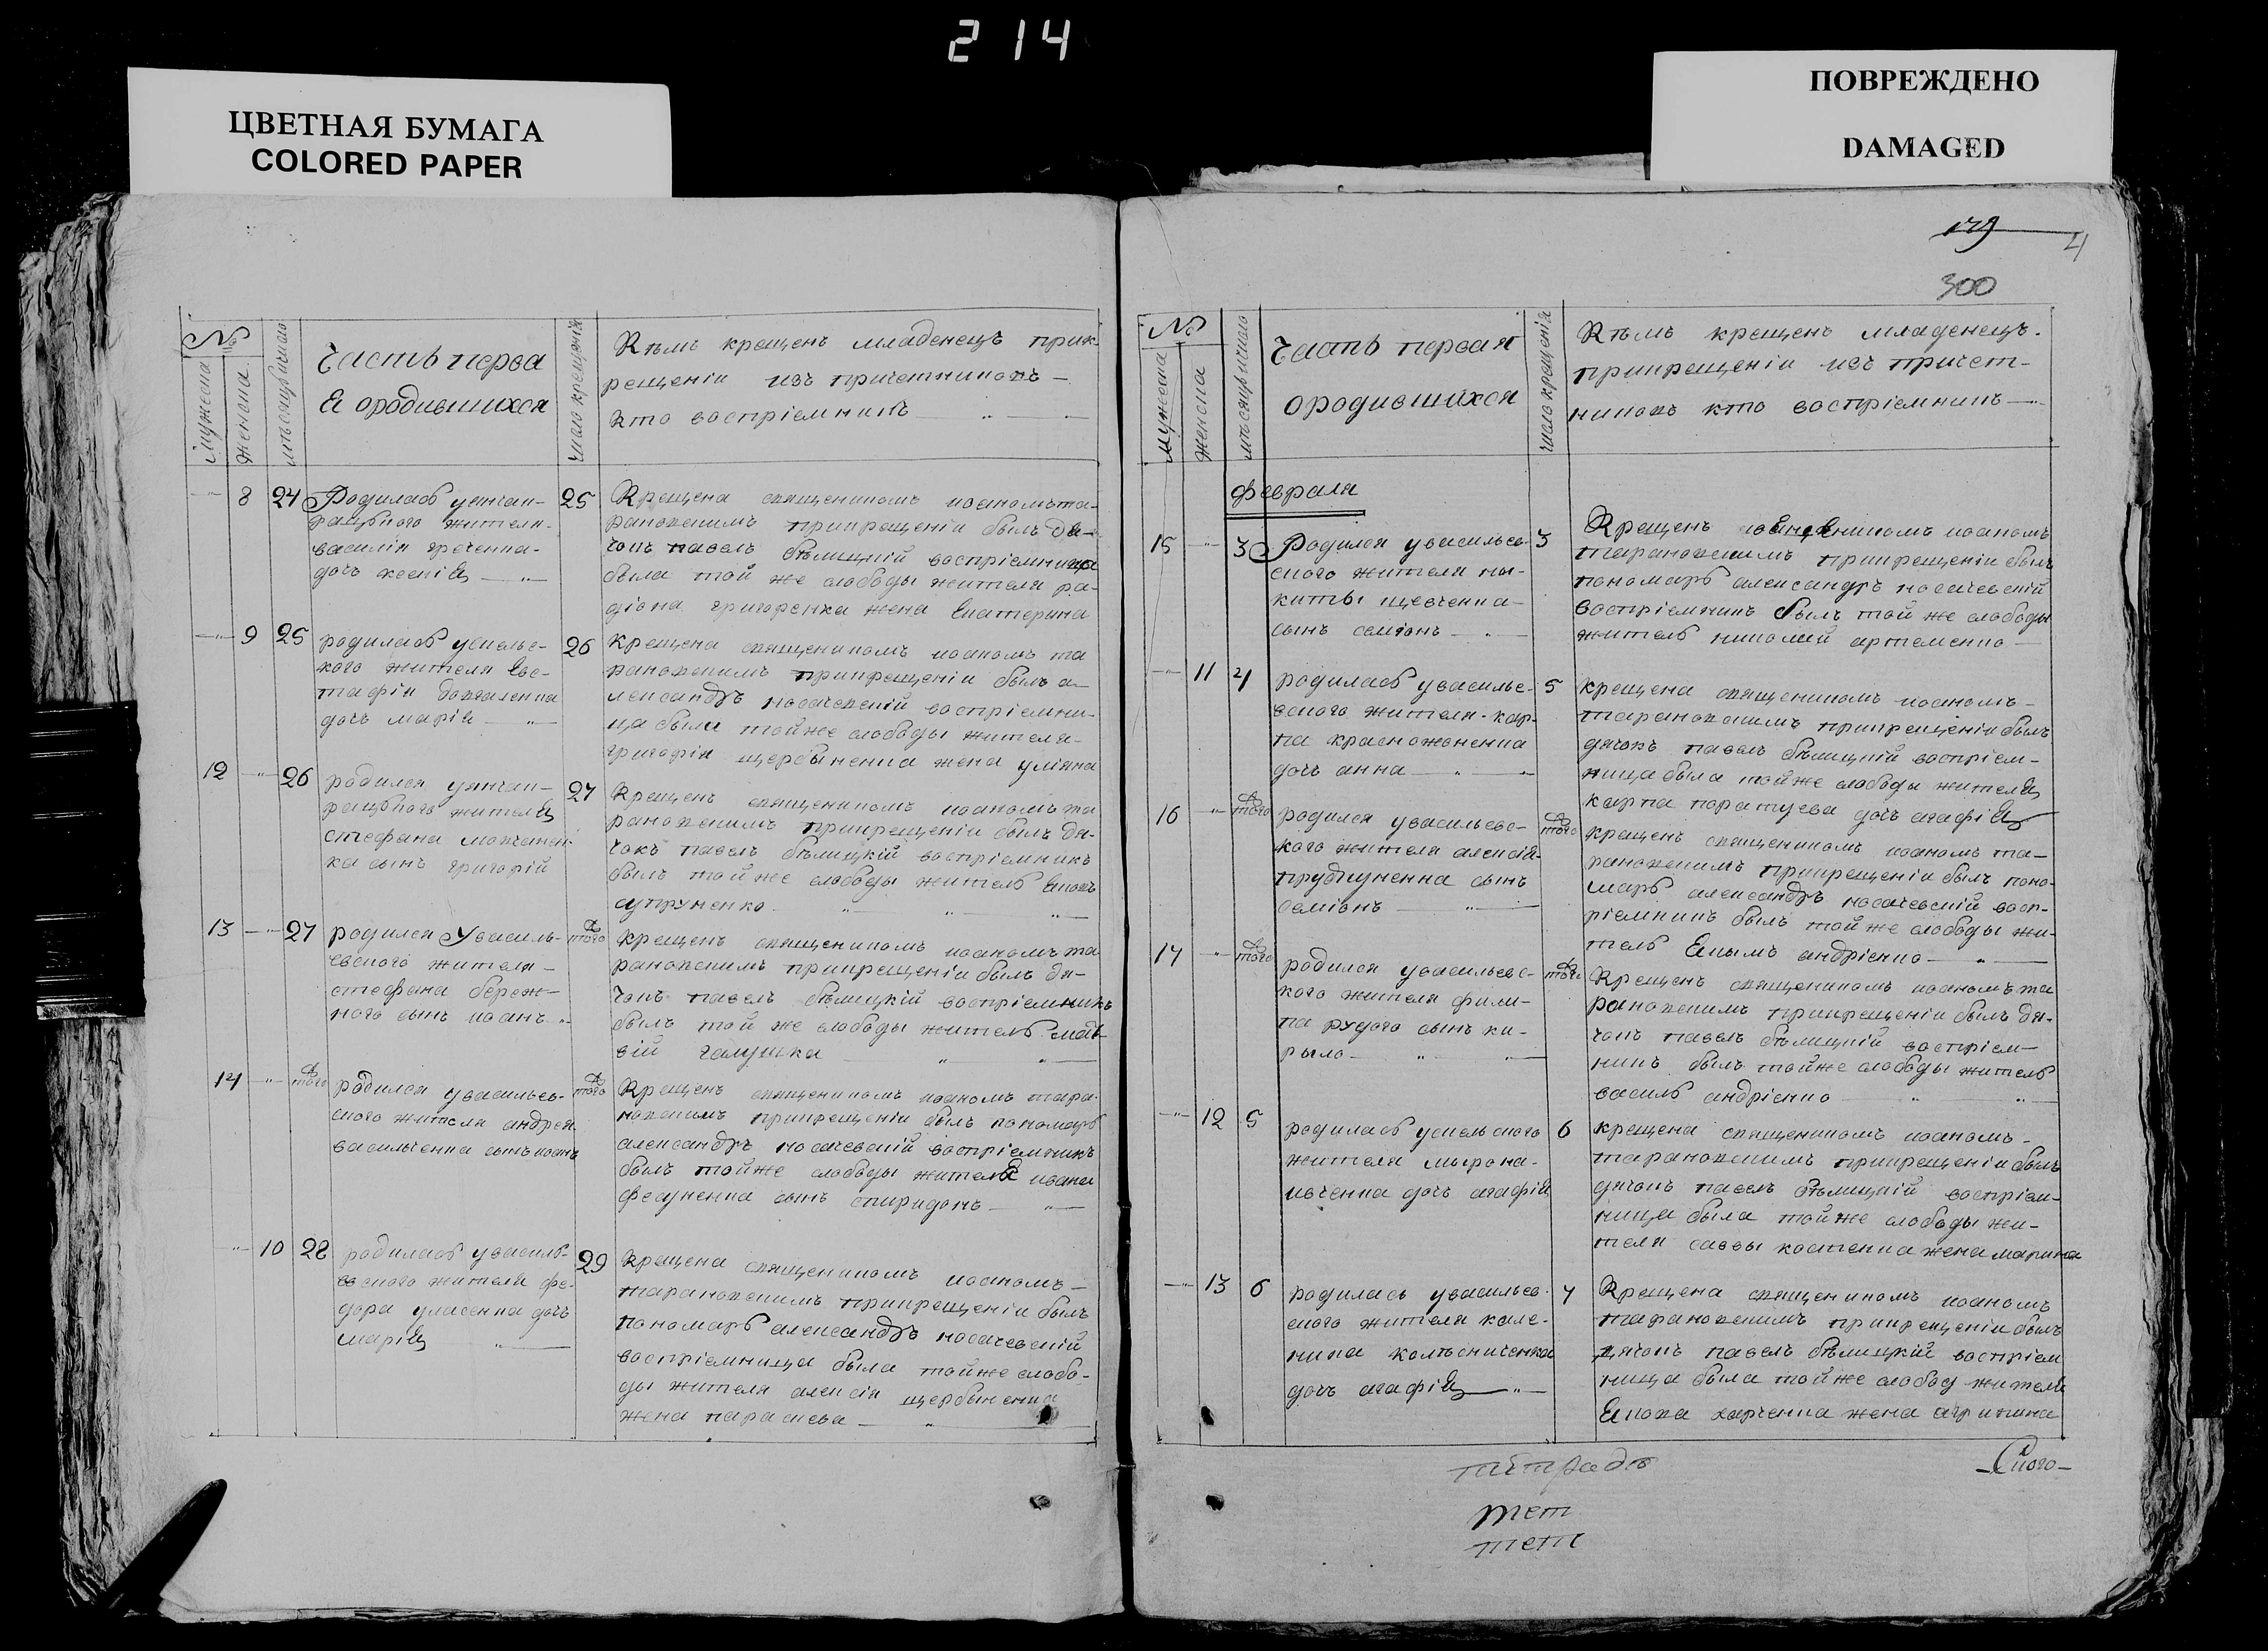 214
ЦВЕТНАЯ БУМАГА
COLORED PAPER
ПОВРЕЖДЕНО
DAMAGED
№
мужеска
женска
мѣсяцъ и число
Часть перва
я ородившихся
число крещенія
Кѣмъ крещенъ младенецъ прик-
рещеніи изъ причетниковъ —
кто воспріемникъ
8 24
Родилась
жителя
василія греченка
дочь ксенія
25
Крещена священикомъ иоаномъ та-
рановскимъ прикрещеніи былъ дя-
чокъ павелъ бѣлицкій воспріемница
была той же слободы жителя ра-
діона григоренка жена екатерина
9 25
родилась усельс-
кого жителя евс-
тафія
дочь марія
26
крещена священикомъ иоаномъ та
рановскимъ прикрещеніи былъ а-
лександръ носачевскій воспріемни-
ца была тойже слободы жителя
григорія щербыненка жена уліяна
12 26
родился
жителя
стефана
ка сынъ григорій
27
Крещенъ священикомъ иоаномъ та
рановскимъ прикрещеніи былъ дя-
чокъ павелъ бѣлицкій воспріемникъ
былъ той же слободы житель
супруненко
13 27
родился увасиль-
евского жителя
стефана береж-
ного сынъ иоанъ
того
крещенъ священикомъ иоаномъ та
рановскимъ прикрещеніи былъ дя-
чокъ павелъ бѣлицкій воспріемникъ
былъ той же слободы житель мат-
вій галушка
14 того
родился увасильев-
ского жителя андрея
васильченка сынъ иоанъ
того
Крещенъ священикомъ иоаномъ тара-
новскимъ прикрещеніи былъ пономарь
александръ носачевскій воспріемникъ
былъ тойже слободы жителя ивана
фесуненка сынъ спиридонъ
10 28
родилась увасиль-
евского жителя фе-
дора уласенка дочь
марія
29
Крещена священикомъ иоаномъ
тарановскимъ прикрещеніи былъ
пономарь александръ носачевскій
воспріемница была тойже слобо-
ды жителя алексія щербыненка
жена параскева
179
4
300
№
мужеска
женска
мѣсяцъ и число
Часть первая
ородившихся
число крещенія
Кѣмъ крещенъ младенецъ
прикрещеніи изъ причет-
никовъ кто воспріемникъ
февраля
15 3
Родился увасильев-
ского жителя ны-
киты щевченка
сынъ семіонъ
3
Крещенъ священикомъ иоаномъ
тарановскимъ прикрещеніи былъ
пономарь александръ носачевскій
воспріемникъ былъ той же слободы
житель николай артеменко
11 4
родилась увасильев-
вского жителя кар-
па красножоненка
дочь анна
5
крещена священикомъ иоаномъ
тарановскимъ прикрещеніи былъ
дячокъ павелъ бѣлицкій воспріем-
ница была тойже слободы жителя
карпа каратуева дочь агафія
16 того
родился увасильевс-
кого жителя алексія
трубчученка сынъ
семіонъ
того
крещенъ священикомъ иоаномъ та-
рановскимъ прикрещеніи былъ поно-
марь александръ носачевскій восп-
ріемникъ былъ той же слободы жи-
тель екымъ андріенко
17 того
родился увасильевс-
кого жителя фили-
па рудого сынъ ки-
рыло
того
Крещенъ священикомъ иоаномъ та
рановскимъ прикрещеніи былъ дя-
чокъ павелъ бѣлицкій воспріем-
никъ былъ тойже слободы житель
василь андріенко
12 5
родилась усельского
жителя мырона
ивченка дочь агафія
6
крещена священикомъ иоаномъ
тарановскимъ прикрещеніи былъ
дячокъ павелъ бѣлицкій воспріем-
ница была тойже слободы жи-
теля саввы костенка жена марина
13 6
родилась увасильев-
ского жителя кале-
ника колѣсниченка
дочь агафія
7
Крещена священикомъ иоаномъ
тарановскимъ прикрещеніи былъ
дячокъ павелъ бѣлицкій воспріем
ница была тойже слобод жителя
харченка жена агрипина
тетрадь
тет
тет